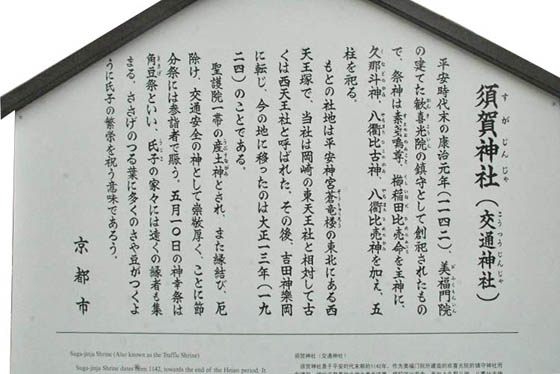 須賀神社（交通神社）
すがじんじゃ こうつうじんじゃ
平安時代末の康治元年（一一四二）、美福門院
の建てた歓喜光院の鎮守として創祀されたもの
で、祭神は素戔嗚尊、櫛稲田比売命を主神に、
久那斗神、八衢比古神、八衢比売神を加え、五
柱を祀る。
もとの社地は平安神宮蒼竜楼の東北にある西
天王塚で、当社は岡崎の東天王社と相対して古
くは西天王社と呼ばれた。その後、吉田神楽岡
に転じ、今の地に移ったのは大正一三年（一九
二四）のことである。
聖護院一帯の産土神とされ、また縁結び、厄
除け、交通安全の神として崇敬厚く、ことに節
分祭には参詣者で賑う。五月一〇日の神幸祭は
角豆祭といい、氏子の家々には遠くの縁者も集
まる。ささげのつる葉に多くのさや豆がつくよ
うに氏子の繁栄を祝う意味であろう。
京都市
Suga-jinja Shrine (Also known as the Traffic Shrine)
Suga-jinja Shrine dates from 1142, towards the end of the Heian period. It
须贺神社（交通神社）